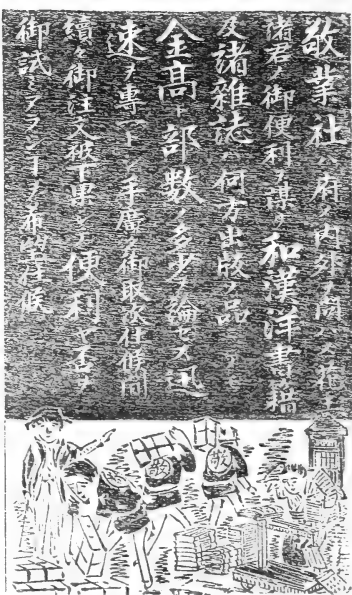 敬業社ハ府ノ内外ヲ問ハズ花主
諸君ノ御便利ヲ謀リ和漢洋書籍
及諸雑誌ハ何方出版ノ品ニテモ
金高ト部数ノ多少ヲ論セス迅
速ヲ專一トシ手廣ク御取次仕候間
續々御注文被下果シテ便利ヤ否ヲ
御試ミアランヿヲ希望仕候
敬
敬